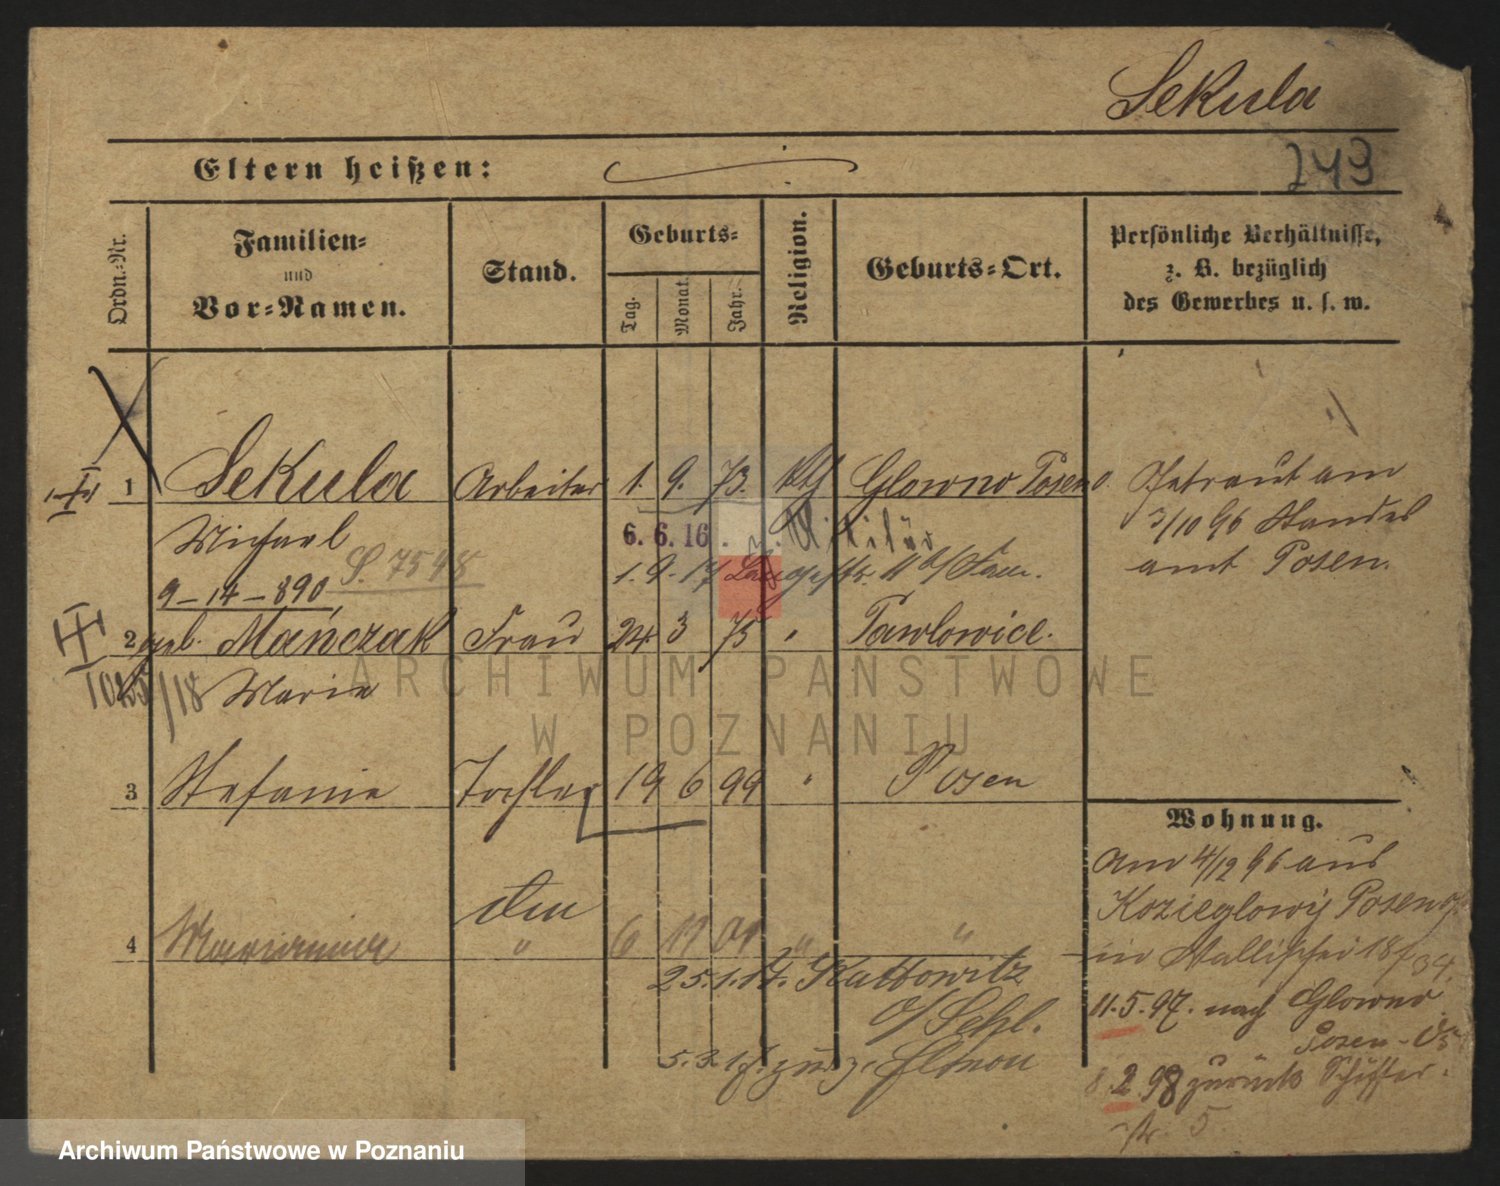 Sekula
Eltern heißen:
243
Ordn.=Nr.
Familien=
und
Vor=Namen.
Stand.
Geburts=
Tag.
Monat.
Jahr.
Religion.
Geburts=Ort.
Persönliche Verhältnisse,
z. B. bezüglich
des Gewerbes u. s. w.
1 Sekula Arbeiter 1. 9. 73. kth Glowno Posen O.
Michael
S. 7598
9-14-890
6. 6. 16. Militär
1. 9. 17
Getraut am
3/10 96 Standes
amt Posen.
2 geb. Mańczak Frau 24. 3 75 " Pawlowice.
Marie
/18
3 Stefanie Tochter 19 6 99 " Posen
4 Marianna " 6 11 01 " "
25.1.17. Kattowitz
O/Schl.
5.3.17. zur. Eltern
Wohnung.
Am 4/12 96 aus
Kozieglowy Posen
in Wallischei
11.5.97. nach Glowno
Posen-Ost
8.2.98 zurück Schiffer-
str. 5
ARCHIWUM PAŃSTWOWE
W POZNANIU
Archiwum Państwowe w Poznaniu